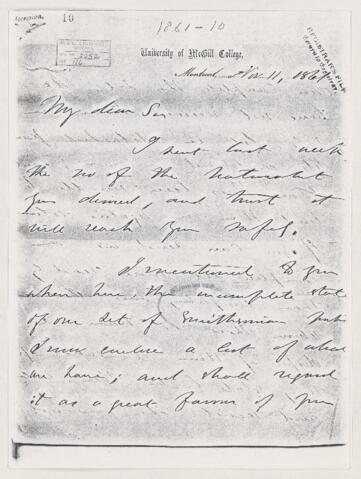 10
1861-10
REGISTRAR'S FILE
University of McGill College,
Montreal, Nov. 11, 1861
My dear Sir
I sent last week
the no of the Naturalist
you desired, and trust it
will reach you safely.
I mentioned to you
when here, the incomplete state
of our set of Smithsonian pub
I now enclose a list of what
we have; and shall regard
it as a great favour if you